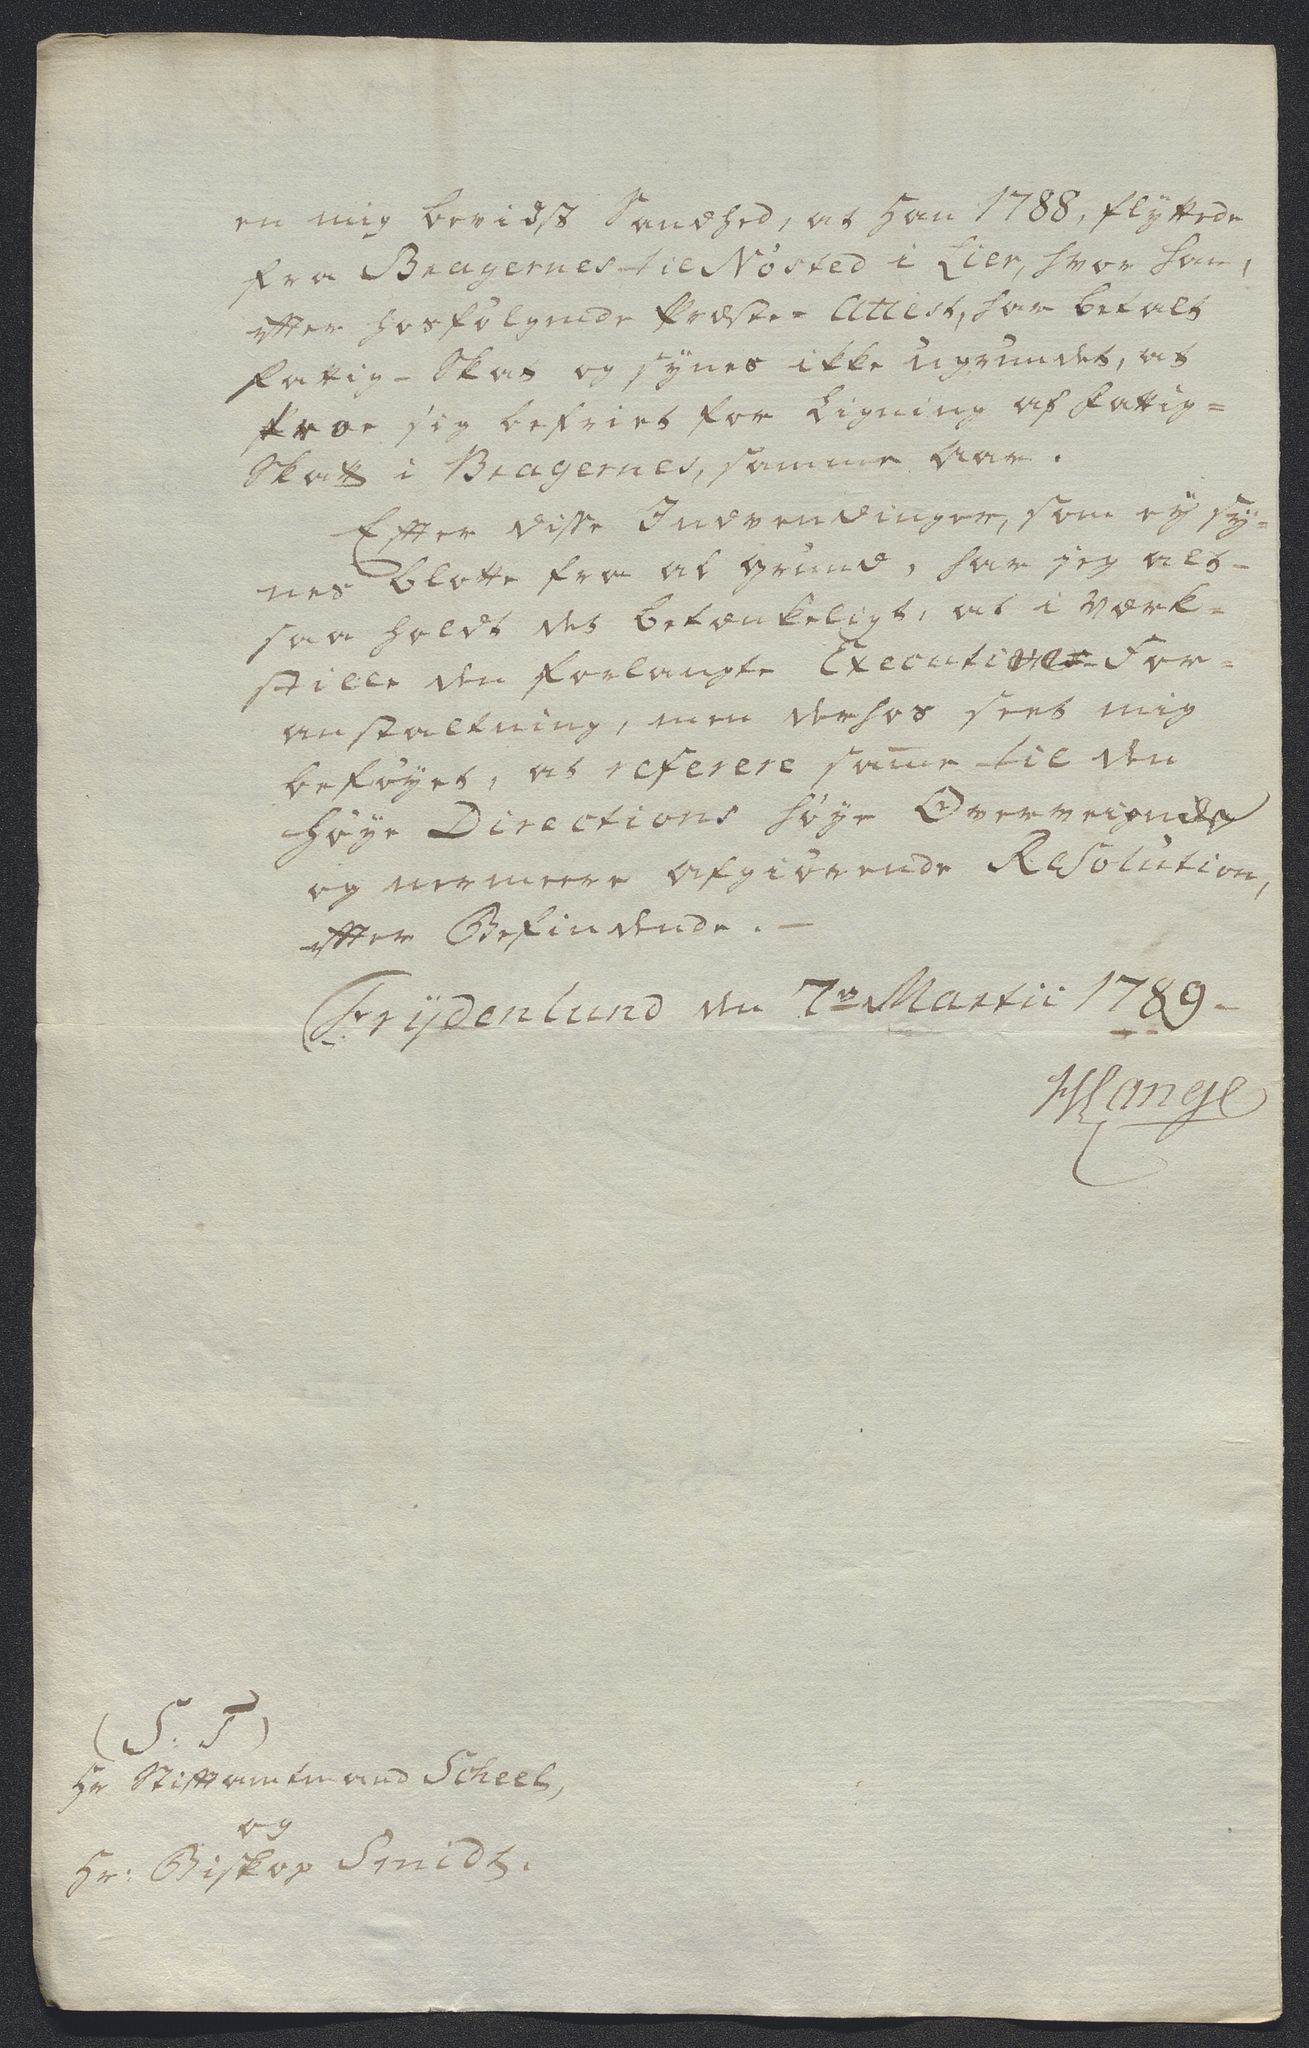 en mig bevidst Sandhed, at han 1788, flyttede
fra Bragernes til Nøsted i Lier, hvor han,
efter hosfølgende Præste-Attest, har betalt
Fattig-Skat og synes ikke ugrundet, at
troe sig befriet for Ligning af Fattig=
Skatt i Bragernes, samme Aar.
Efter disse Indvendinger, som ey sy=
nes blotte fra al grund, har jeg alt-
saa holdt det betænkeligt, at i værk=
stille den forlangte Executive For=
anstaltning, men derhos seet mig
beføyet, at referere same til den
høye Directions høye Overveiende
og nermere afgiørende Resolution,
efter Befindende. —
Frydenlund den 7de Martii 1789 –
HLange
(S. T)
Hr Stiftamtmand Scheel,
og
Hr: Biskop Smidt.